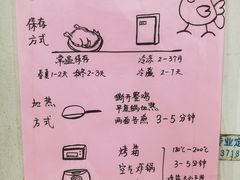 保存
方式
常温保存
春夏1-2天 秋冬2-3天
冷冻 2-3个月
冷藏 2-7天
加热
方式
撕开整鸡
平底锅加热
两面各煎 3-5分钟
烤箱
空气炸锅
180℃-200℃
3-5分钟
业定
3718